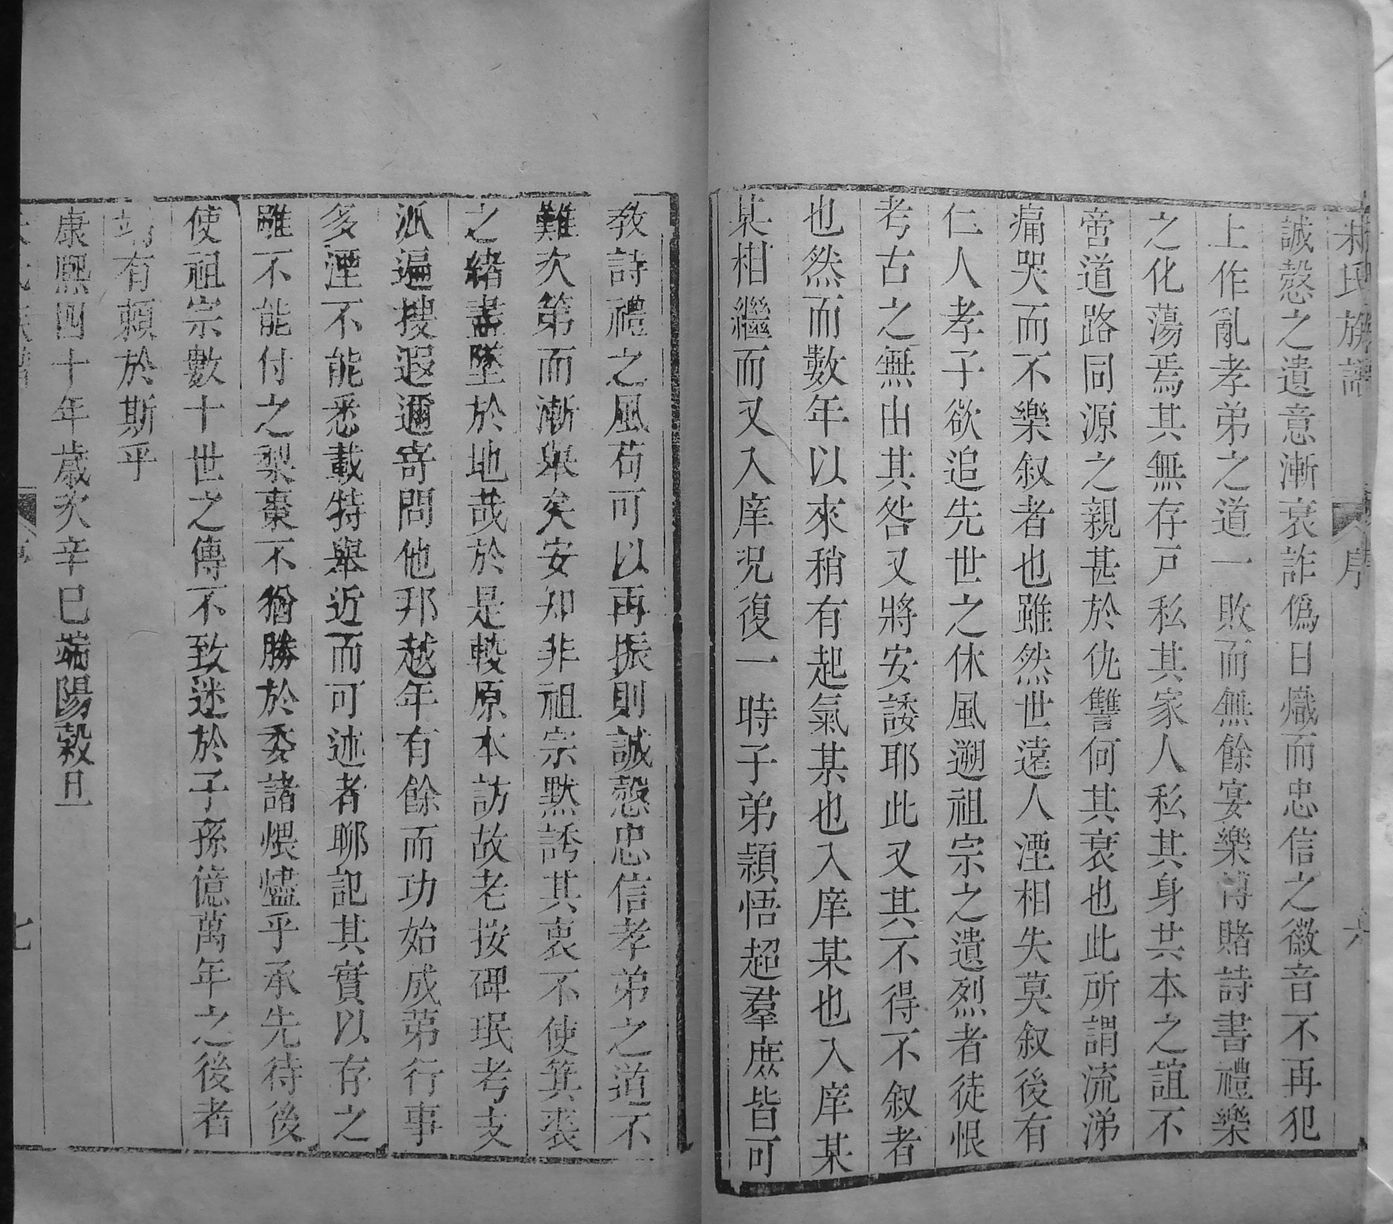 氏族譜 序 六
誠慤之遺意漸衰詐僞日熾而忠信之徽音不再犯
上作亂孝弟之道一敗而無餘宴樂博賭詩書禮樂
之化蕩焉其無存戸私其家人私其身共本之誼不
啻道路同源之親甚於仇讐何其衰也此所謂流涕
痛哭而不樂叙者也雖然世遠人湮相失莫叙後有
仁人孝子欲追先世之休風遡祖宗之遺烈者徒恨
考古之無由其咎又將安諉耶此又其不得不叙者
也然而數年以來稍有起氣某也入庠某也入庠某
某相繼而又入庠况復一時子弟頴悟超羣庶皆可
教詩禮之風苟可以再振則誠慤忠信孝弟之道不
難次第而漸舉矣安知非祖宗黙誘其衷不使箕裘
之緒盡墜於地哉於是輾原本訪故老按碑珉考支
派遍搜遐邇寄問他邦越年有餘而功始成苐行事
多湮不能悉載特舉近而可述者聊記其實以存之
雖不能付之梨棗不猶勝於委諸煨燼乎承先待後
使祖宗數十世之傳不致迷於子孫億萬年之後者
端有賴於斯乎
康熙四十年歲次辛巳端陽榖旦
七